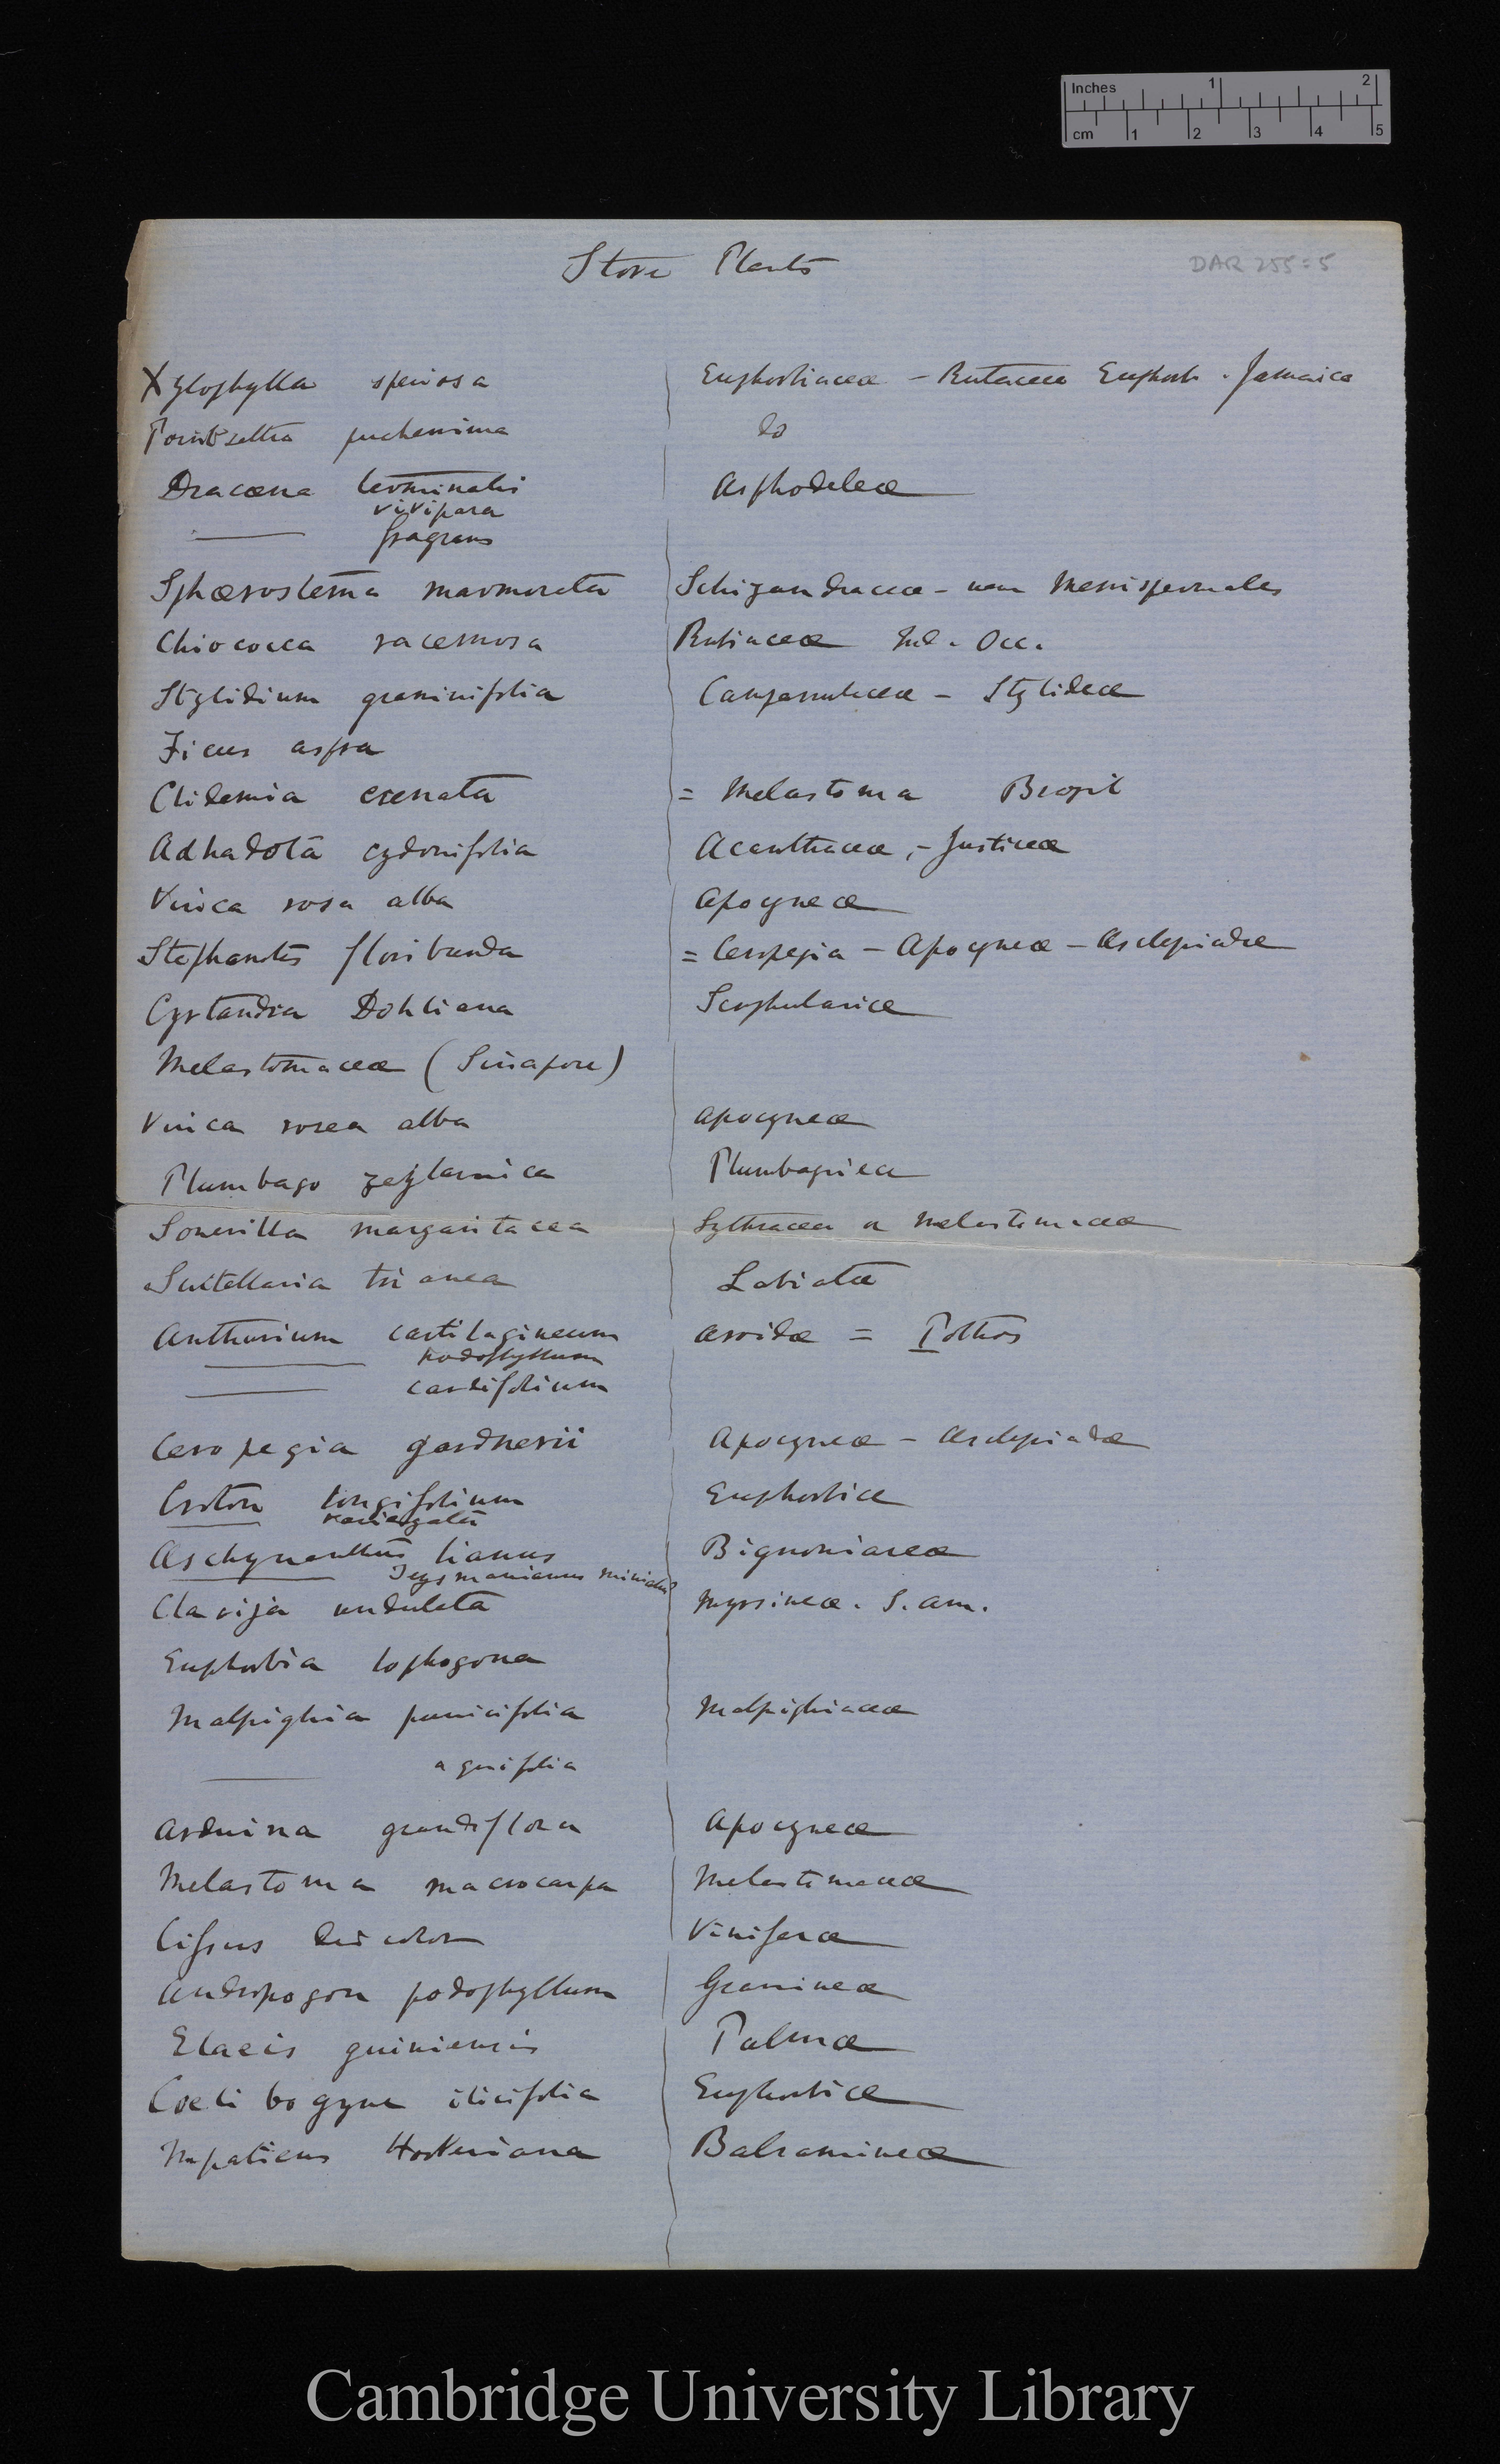 Inches 1 2
cm 1 2 3 4 5
Stove Plants
DAR 255:5
Xylophylla speciosa Euphorbiaceæ – Rutaceæ Euphorb. Jamaica
Pointsettia pucherrima do
Dracæna terminalis Asphodeleæ
vivipara
fragrans
Sphærostema marmorata Schizandraceæ – near Menispermales
Chiococca racemosa Rubiaceæ Ind. Occ.
Stylidium graminifolia Campanulaceæ – Stylideæ
Ficus aspra
Clidemia crenata = Melastoma Brazil
Adhadota cydonifolia Acanthaceæ, – Justiceæ
Vinca rosa alba Apocyneæ
Stephanotis floribunda = Ceropegia – Apocyneæ – Asclepiadæ
Cyrtandra Dohliana Scrophulariæ
Melastomaceæ (Sinapore)
Vinca rosea alba apocyneæ
Plumbago zeylanica Plumbagineæ
Sonerilla margaritacea Lythraceæ or Melastomaceæ
Scutellaria trianea Labiatæ
Anthurium cartilagineum aroidæ = Pothos
podophyllum
cardifolium
Ceropegia gardnerii Apocyneæ – Asclepiadæ
Croton longifolium Euphorbiæ
variegata
Aschynanthus lianus Bignoniaceæ
Teysmanianus miniatus
Clavija undulata Myrsineæ. S. am.
Euphorbia lophogona
Malpighia punicifolia Malpighiaceæ
aquifolia
Arduina grandiflora Apocyneæ
Melastoma macrocarpa Melastomaceæ
Cissus discolor Viniferæ
Andropogon podophyllum Gramineæ
Elaeis guiniensis Palmæ
Coelibogyne ilicifolia Euphorbiæ
Impatiens Hookeriana Balsamineæ
Cambridge University Library